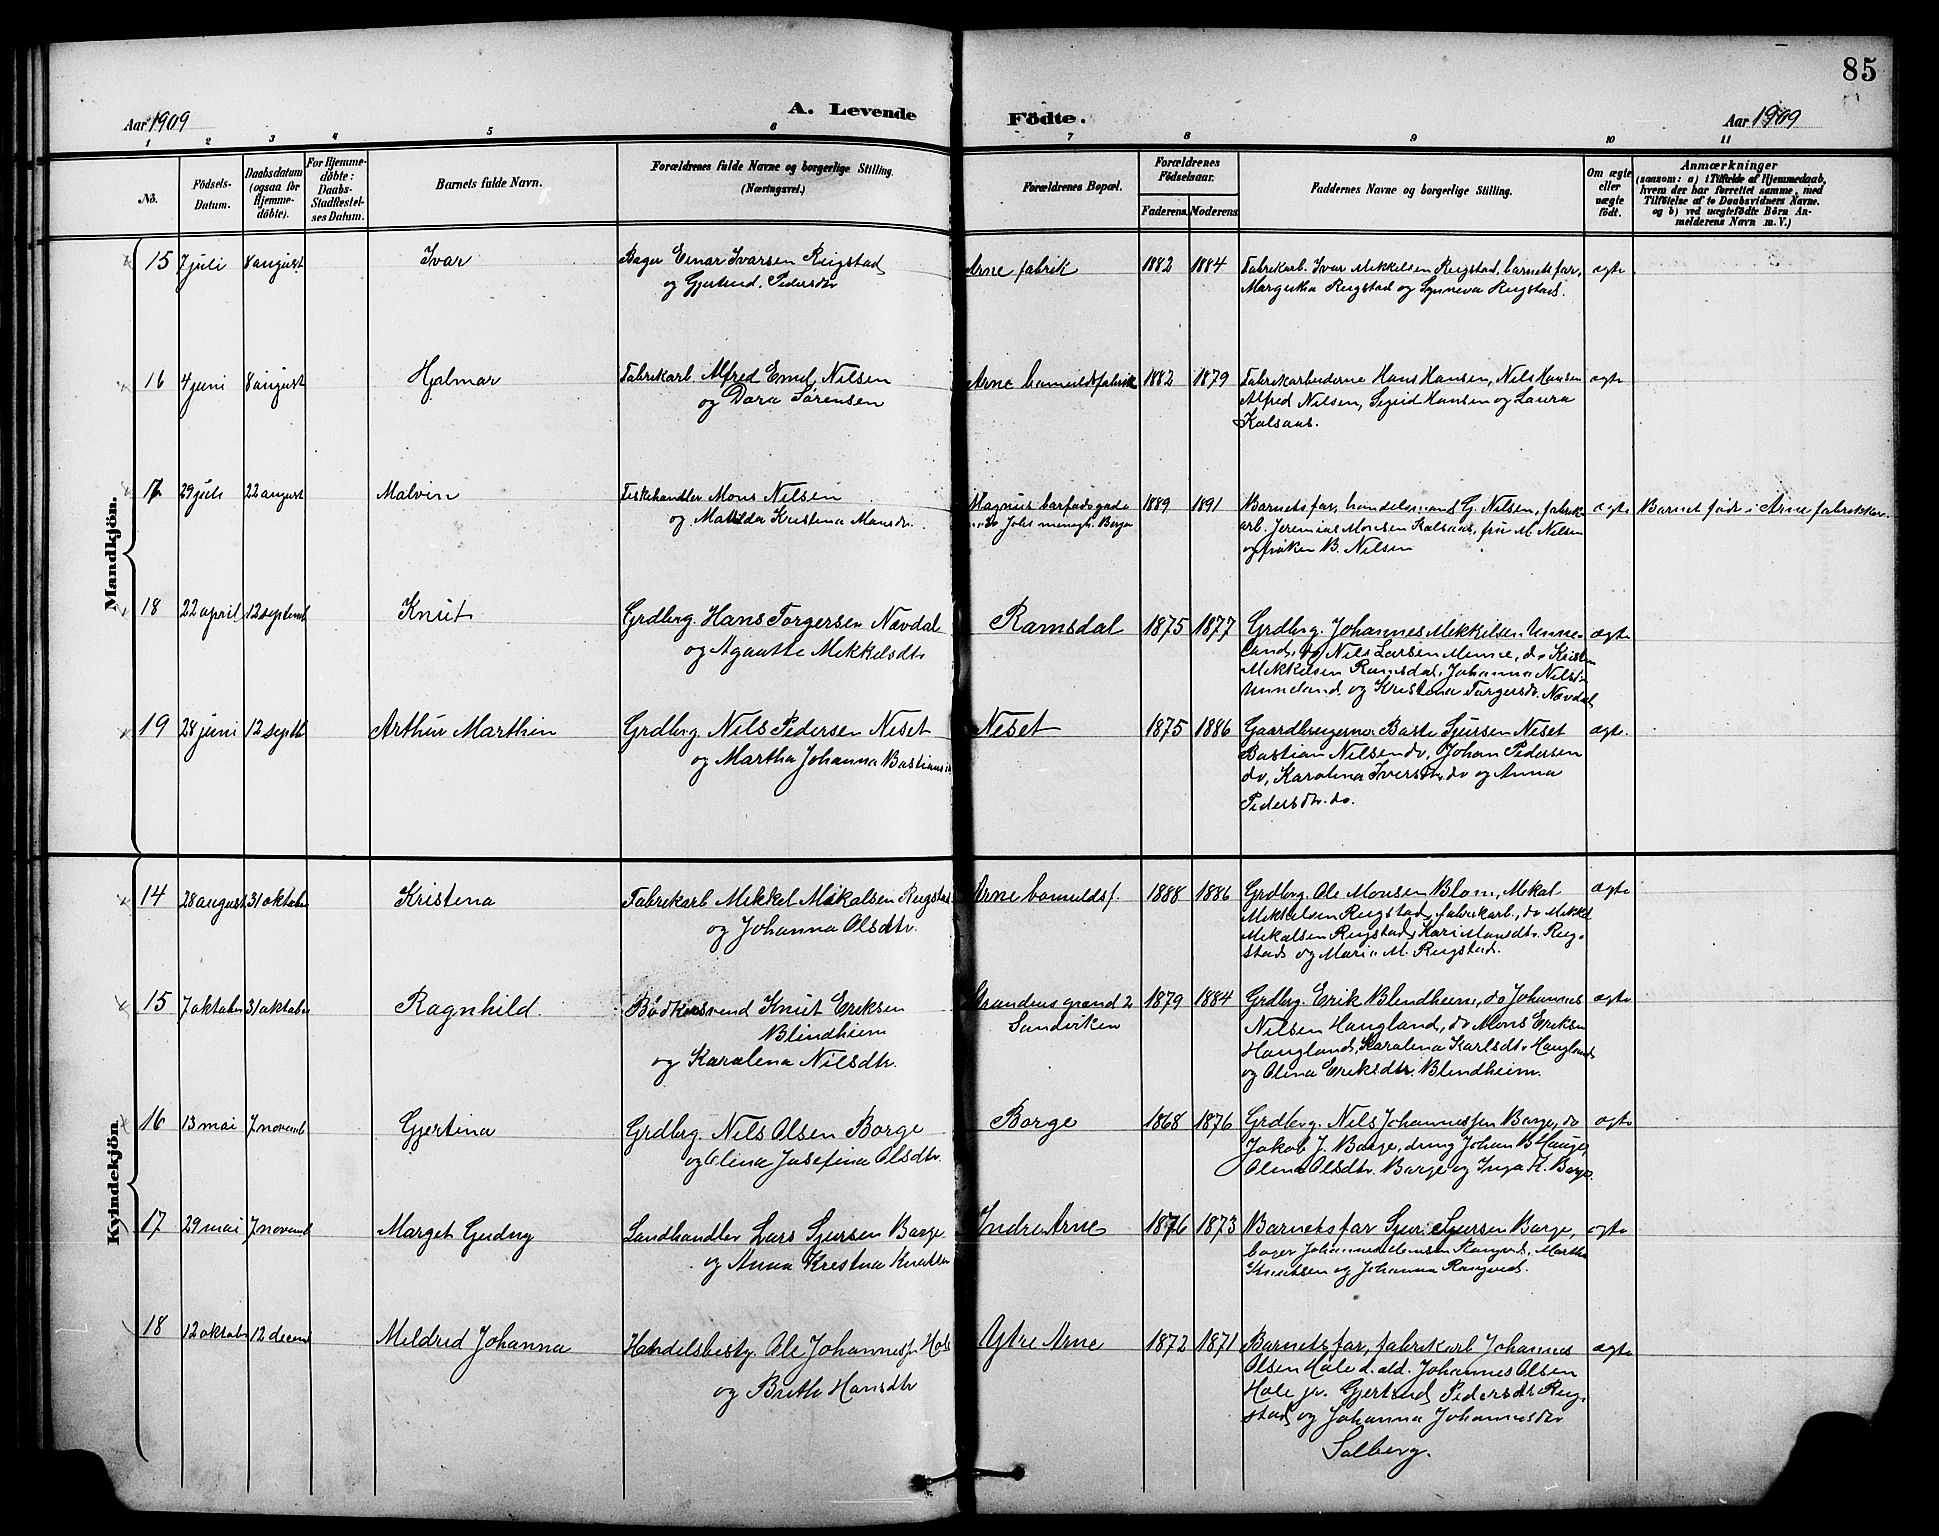 85
Aar 1909
A. Levende
Födte.
Aar 1909
1 2 3 4 5 6 7 8 9 10 11
No.
Födsels-
Datum.
Daabsdatum
(ogsaa for
Hjemme-
döbte).
For Hjemme-
döbte:
Daabs-
Stadfestel-
ses Datum.
Barnets fulde Navn.
Forældrenes fulde Navne og borgerlige Stilling.
(Næringsvei.)
Forældrenes Bopæl.
Forældrenes
Födselsaar.
Faderens. Moderens.
Faddernes Navne og borgerlige Stilling.
Om ægte
eller
uægte
født.
Anmærkninger
(saasom: a) i Tilfælde af Hjemmedaab,
hvem der har forrettet samme, med
Tilföielse af to Daabsvidners Navne.
og b) ved uægtefödte Börn An-
melderens Navn m. V.)
Mandkjön.
15 7 juli 8 august Ivar
Bager Einar Ivarsen Rugstad
og Gjertrud Pedersdtr
Arne fabrik 1882 1884
Fabrikarb. Ivar Mikkelsen Rugstad, barnets far,
Margretha Rugstad og Synneva Rugstad.
ægte
16 4 juni 8 august Hjalmar
Fabrikarb. Alfred Emil Nilsen
og Dora Sørensen
Arne bomuldsfabrik 1882 1879
Fabrikarbeiderne Hans Hansen, Nils Hansen
Alfred Nilsen, Sigrid Hansen og Laura
Kalsaas.
ægte
17 29 juli 22 august Malvin
Fiskehandler Mons Nilsen
og Matilda Kristina Monsdr.
Magnus barfods gade
1889 1891
Barnets far, handelsmand G. Nilsen, fabrik-
arb. Jeremias Monsen Kalsaas, fru M. Nilsen
og frøken B. Nilsen
ægte
Barnet født i Arne fabrikker.
18 22 april 12 septemb Knut
Grdbrg. Hans Torgersen Nævdal
og Agaatte Mikkelsdtr
Ramsdal 1875 1877
Grdbrg. Johannes Mikkelsen Unne-
land, do Nils Larsen Minne, do Kristen
Mikkelsen Ramsdal, Johanna Nilsd.
Unneland og Kristina Torgersdr. Nævdal
ægte
19 28 juni 12 septb Arthur Marthin
Grdbrg. Nils Pedersen Neset
og Martha Johanna Bastians
Neset 1875 1886
Gaardbrugerne Baste Sjursen Neset
Bastian Nilsen do, Johan Pedersen
do, Karolina Iversdtr. do og Anna
Pedersdtr. do.
ægte.
Kvindekjön.
14 28 august 31 oktober Kristina
Fabrikarb Mikkel Mikalsen Rugstad
og Johanna Olsdtr.
Arne bomuldsf. 1888 1886
Grdbrg. Ole Monsen Blom, Mikal
Mikkelsen Rugstad, fabrikarb., do Mikkel
Mikalsen Rugstad, Kari Monsdtr. Rug-
stad og Maria M. Rugstad.
ægte
15 7 oktober 31 oktober Ragnhild
Bødkersvend Knut Eriksen
Blindheim
og Karalina Nilsdtr.
Strandens grænd 2
Sandviken
1879 1884
Grdbrg. Erik Blindheim, do Johannes
Nilsen Haugland, do Mons Eriksen
Haugland, Karalina Karlsdtr. Haugland
og Olina Eriksdtr. Blindheim.
ægte
16 13 mai 7 novemb Gjertina
Grdbrg. Nils Olsen Borge
og Olina Josefina Olsdtr.
Borge 1868 1876
Grdbrg. Nils Johannessen Borge, do
Jakob J. Borge, dreng Johan B. Hauge,
Olina Olsdtr. Borge og Inga K. Borge
ægte
17 29 mai 7 novemb Marget Gudny
Landhandler Lars Sjursen Borge
og Anna Kristina Knutsen
Indre Arne 1876 1873
Barnets far, Sjur Sjursen Borge,
bager Johannes Monsen Romgved, Martha
Knutsen og Johanna Romgved.
ægte
18 12 oktobr 12 decemb Mildred Johanna
Handelsbesty. Ole Johannessen Hole
og Brith Hansdtr
Ytre Arne 1872 1871
Barnets far, fabrikarb Johannes
Olsen Hole d. ald. Johannes Olsen
Hole jr. Gjertrud Pedersdtr Rug-
stad og Johanna Johannesdtr
Solberg.
ægte